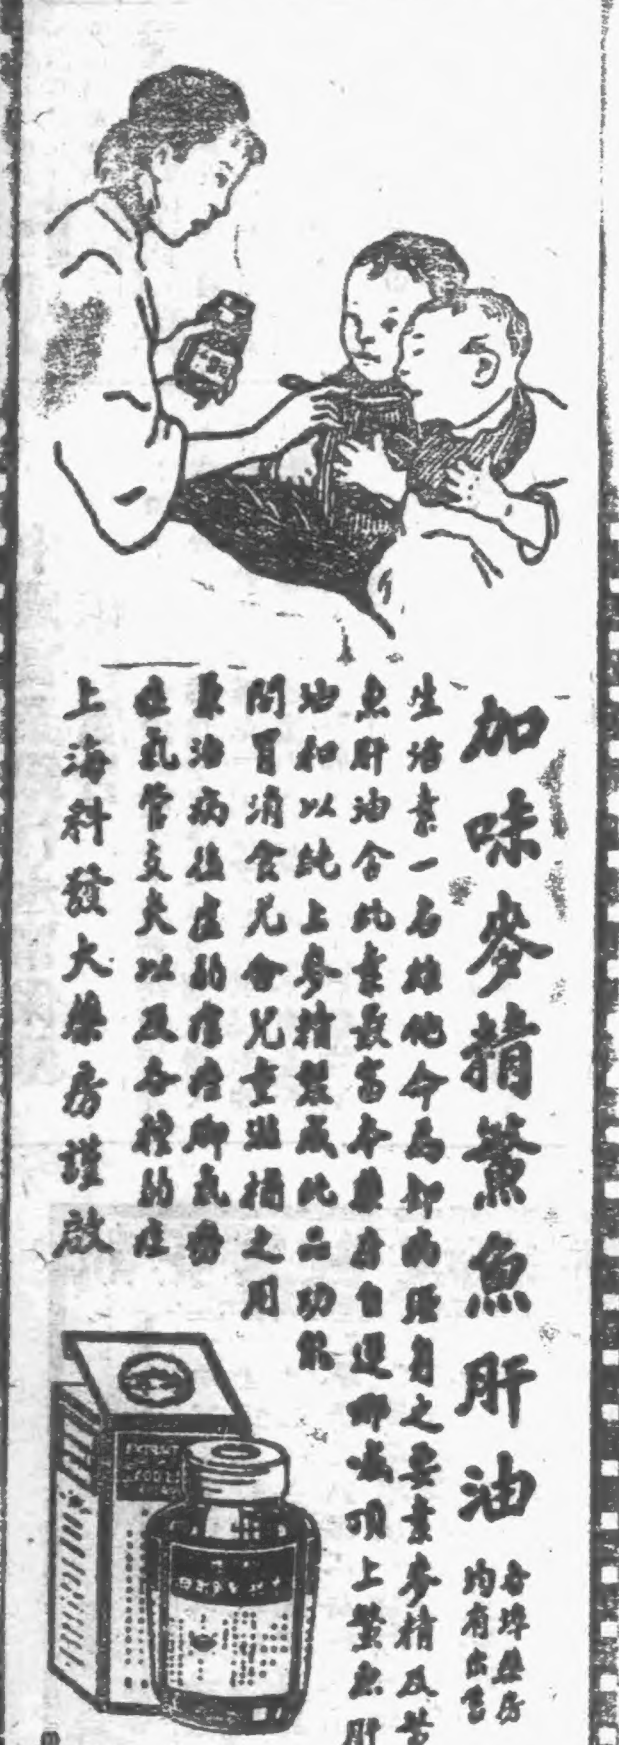 加味麥精鱉魚肝油
各埠藥房
均有出售
生活素一名維他命為卻病強身之要素麥精及苦
魚肝油含此素最富本藥房自運挪威頂上鱉魚肝
油和以純上麥精製成此品功能
開胃消食尤合兒童滋補之用
兼治病後虛弱瘰癧脚氣癆
症氣管支炎以及各種弱症
上海科發大藥房謹啟
EXTRACT